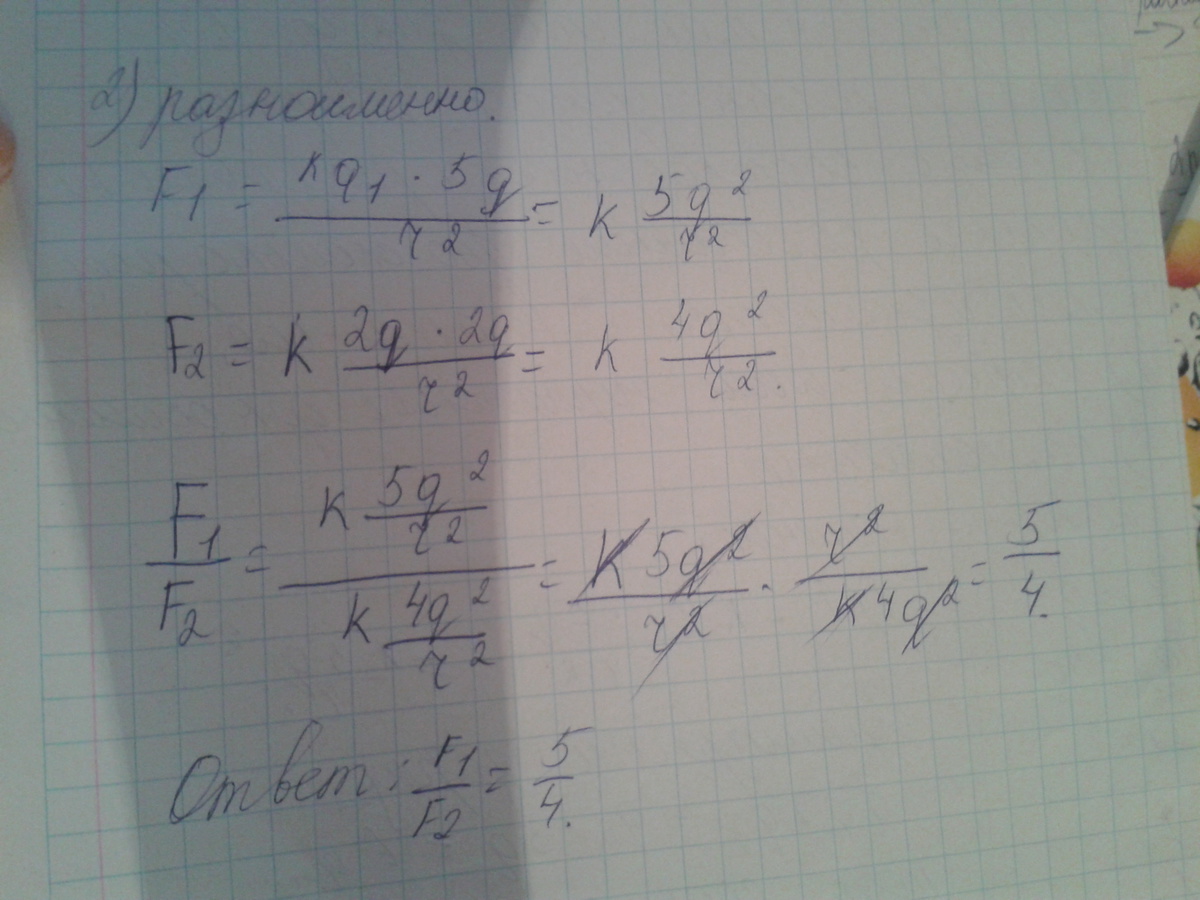 2) разноименно.
F1 = kq1 · 5q / r² = k 5q² / r²
F2 = k 2q · 2q / r² = k 4q² / r².
F1 / F2 = k 5q² / r² / k 4q² / r² = k 5q² / r² · r² / k 4q² = 5 / 4.
Ответ: F1 / F2 = 5 / 4.